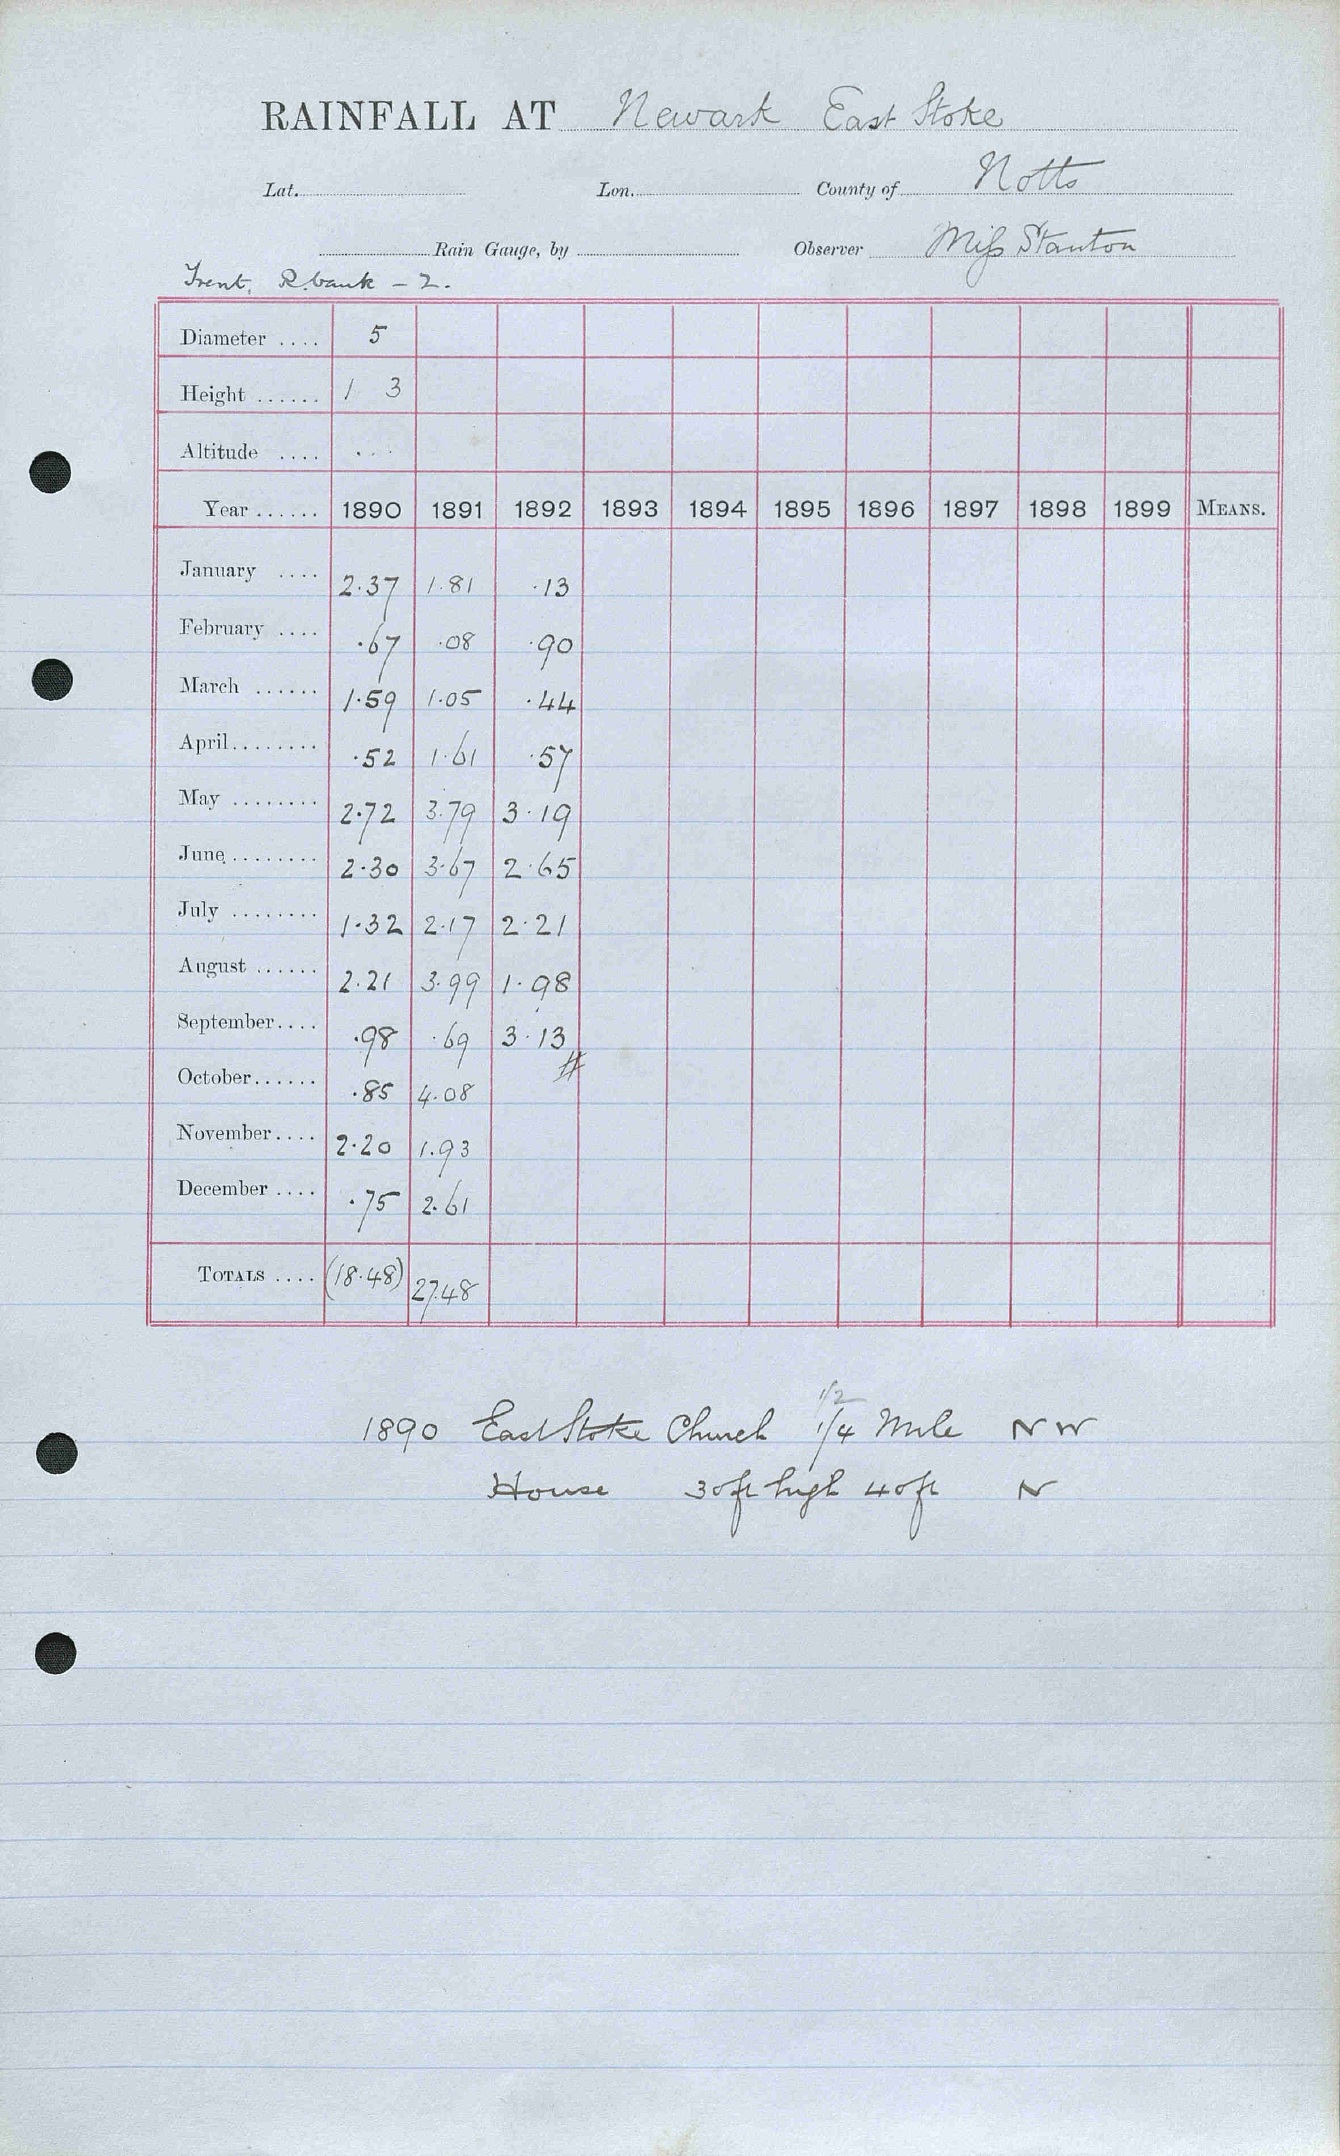 RAINFALL AT Newark East Stoke
Lat. Lon. County of Notts
Rain Gauge, by Observer Miss Stanton
Trent, R. bank - 2.
Diameter .... 5
Height ...... 1 3
Altitude .... ...
Year ...... 1890 1891 1892 1893 1894 1895 1896 1897 1898 1899 MEANS.
January .... 2.37 1.81 .13
February .... .67 .08 .90
March ...... 1.59 1.05 .44
April........ .52 1.61 .57
May ........ 2.72 3.79 3.19
June........ 2.30 3.67 2.65
July ........ 1.32 2.17 2.21
August ...... 2.21 3.99 1.98
September.... .98 .69 3.13
October...... .85 4.08
November.... 2.20 1.93
December .... .75 2.61
TOTALS .... (18.48) 27.48
1/2
1890 East Stoke Church 1/4 Mile NW
House 30ft high 40ft N